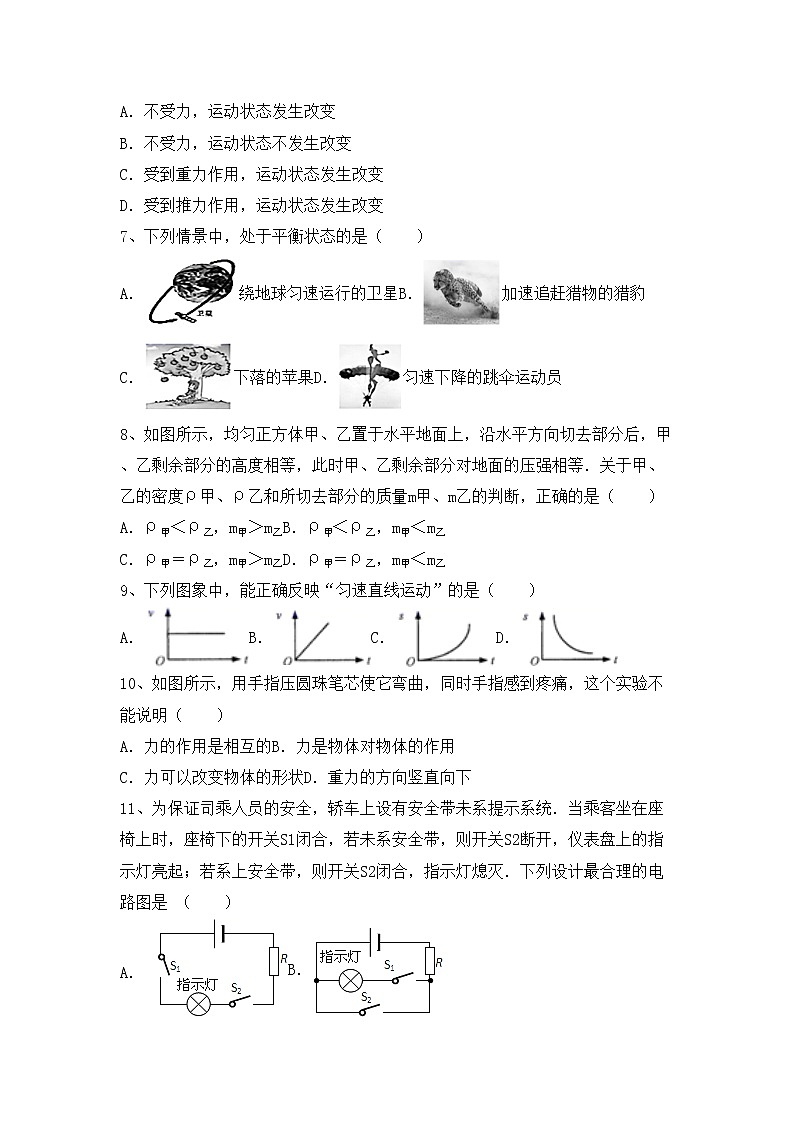 A．不受力，运动状态发生改变
B．不受力，运动状态不发生改变
C．受到重力作用，运动状态发生改变
D．受到推力作用，运动状态发生改变
7、下列情景中，处于平衡状态的是（　　）
A． 卫星 绕地球匀速运行的卫星B． 加速追赶猎物的猎豹
C． 下落的苹果D． 匀速下降的跳伞运动员
8、如图所示，均匀正方体甲、乙置于水平地面上，沿水平方向切去部分后，甲
、乙剩余部分的高度相等，此时甲、乙剩余部分对地面的压强相等．关于甲、
乙的密度ρ甲、ρ乙和所切去部分的质量m甲、m乙的判断，正确的是（　　）
A．ρ甲＜ρ乙，m甲＞m乙B．ρ甲＜ρ乙，m甲＜m乙
C．ρ甲＝ρ乙，m甲＞m乙D．ρ甲＝ρ乙，m甲＜m乙
9、下列图象中，能正确反映“匀速直线运动”的是（　　）
A． v O t B． v O t C． s O t D． s O t
10、如图所示，用手指压圆珠笔芯使它弯曲，同时手指感到疼痛，这个实验不
能说明（　　）
A．力的作用是相互的B．力是物体对物体的作用
C．力可以改变物体的形状D．重力的方向竖直向下
11、为保证司乘人员的安全，轿车上设有安全带未系提示系统．当乘客坐在座
椅上时，座椅下的开关S1闭合，若未系安全带，则开关S2断开，仪表盘上的指
示灯亮起；若系上安全带，则开关S2闭合，指示灯熄灭．下列设计最合理的电
路图是 （　　）
A． S1 指示灯 S2 R B． 指示灯 S1 S2 R